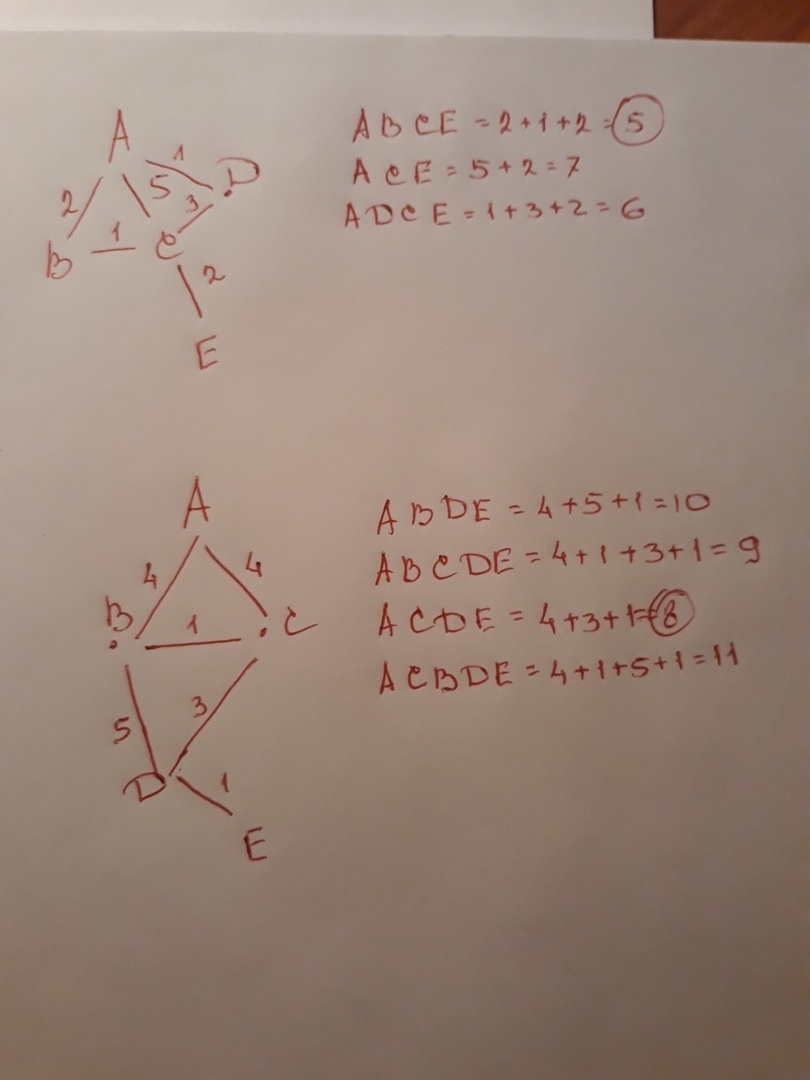 A
1
D
2
5
3
B
1
C
2
E
A B C E = 2 + 1 + 2 = 5
A C E = 5 + 2 = 7
A D C E = 1 + 3 + 2 = 6
A
4
4
B
1
C
5
3
D
1
E
A B D E = 4 + 5 + 1 = 10
A B C D E = 4 + 1 + 3 + 1 = 9
A C D E = 4 + 3 + 1 = 8
A C B D E = 4 + 1 + 5 + 1 = 11